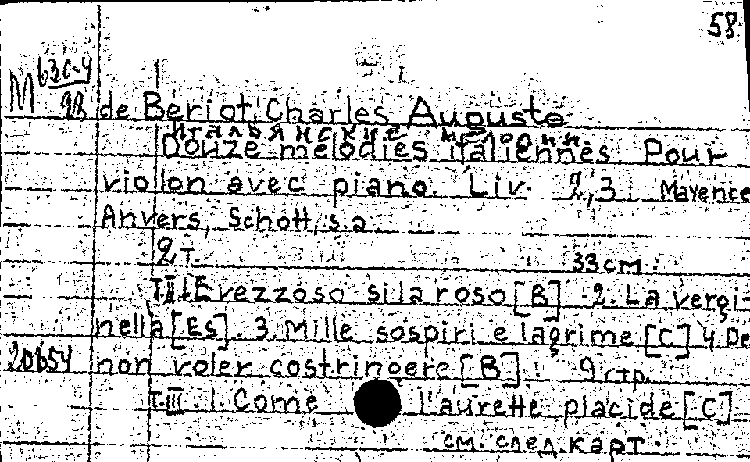 58
M 63c-4
98 de Beriot, Charles Auguste
Итальянские мелодии.
Douze mélodies italiennes pour
violon avec piano. Liv. 2,3 Mayence
Anvers, Schott, s.a
2 т. 33 см.
T.II.1. E vezzoso si la roso [B] 2. La vergi-
nella [Es]. 3. Mille sospiri e lagrime [C] 4. De
20654 non voler costringere [B]. 9 стр.
T.III. 1. Come l'aurette placide [C]
см. след. карт.